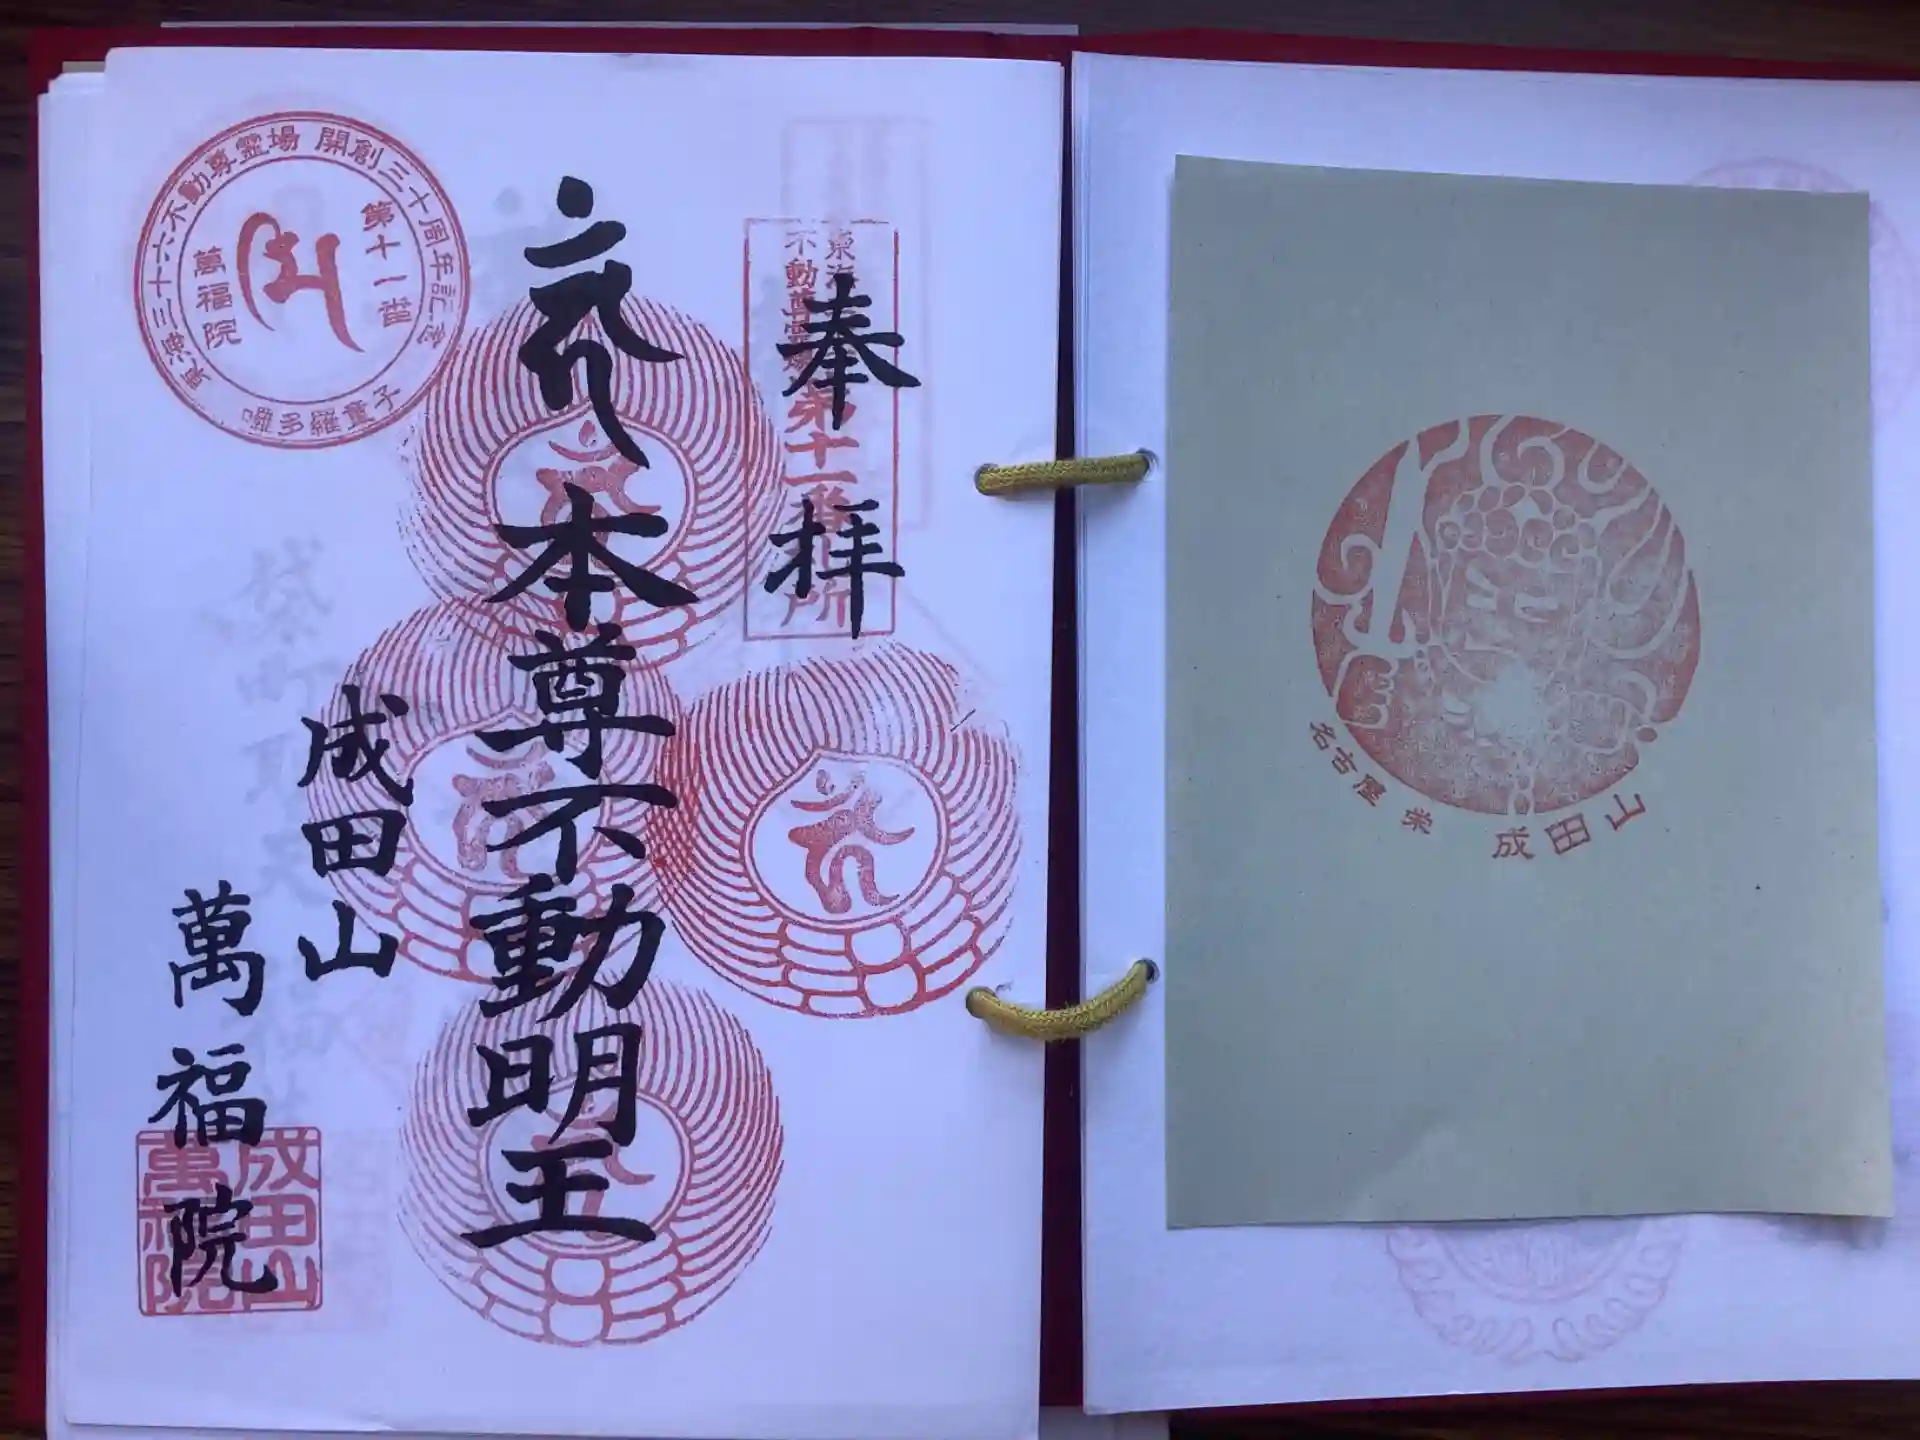 東海三十六不動尊霊場 開創三十周年記念
第十一番
萬福院
嚩多羅童子
東海
不動尊霊場
第十一番札所
奉拝
本尊不動明王
成田山
萬福院
成田山
萬福院
名古屋 栄 成田山